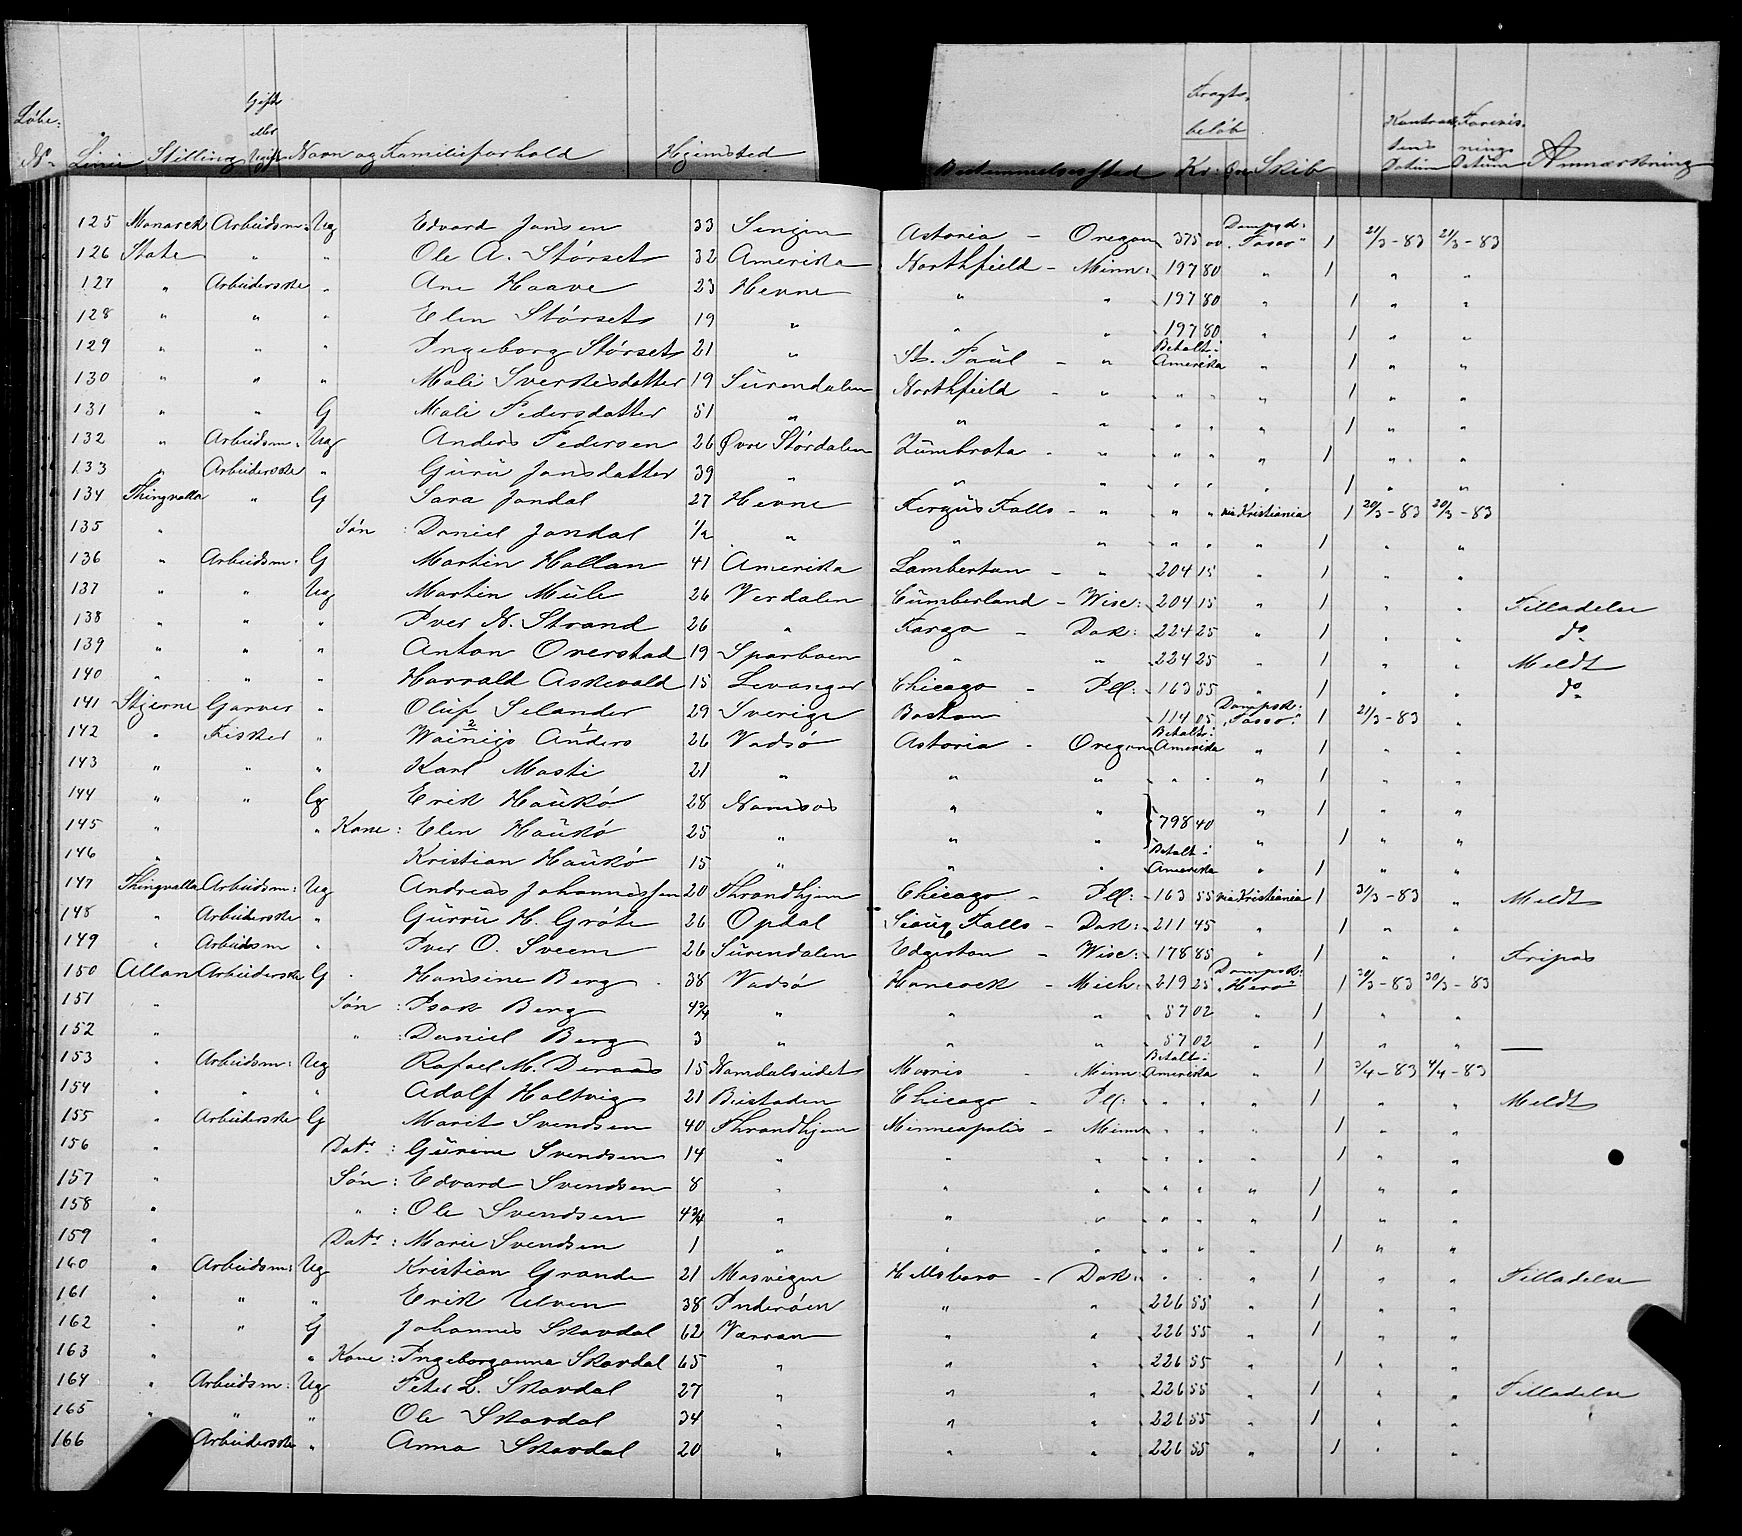 Løbe: № Linie Stilling Gift eller Ugift Navn og Familieforhold Hjemsted Bestemmelsessted Fragtbeløb Kr: Øre Skib Kontraktens Datum Datum Anmærkning
125 Monarch Arbeidsm: Ug Edvard Jensen 33 Senjen Astoria - Oregon 375 00 Dampsk: "Tasso" 1 21/3-83 21/3-83
126 State " " Ole A. Størset 32 Amerika Northfield - Minn: 197 80 " 1 " "
127 " Arbeiderske " Ane Haave 23 Hevne " " 197 80 " 1 " "
128 " " " Elen Størset 19 " " " 197 80 " 1 " "
129 " " " Ingeborg Størset 21 " St. Paul - " Betalt i Amerika " 1 " "
130 " " " Mali Sverkesdatter 19 Surendalen Northfield - " " " " 1 " "
131 " " G Mali Pedersdatter 51 " " " " " " 1 " "
132 " Arbeidsm: Ug Anders Pedersen 26 Øvre Stördalen Zumbrota - " " " " 1 " "
133 " Arbeiderske " Guru Jonsdatter 39 " " " " " " 1 " "
134 Thingvalla " G Sara Jondal 27 Hevne Fergus Falls - " " " via Kristiania 1 20/3-83 20/3-83
135 " Søn: Daniel Jondal 1/2 " " " " " " 1 " "
136 " Arbeidsm: G Martin Hallan 41 Amerika Lamberton - " 204 15 " 1 " "
137 " " Ug Martin Mule 26 Verdalen Cumberland - Wisc: 204 15 " 1 " " Tilladelse
138 " " " Iver N. Strand 26 " Fargo - Dak: 224 25 " 1 " " do
139 " " " Anton Overstad 19 Sparboen " " 224 25 " 1 " " Meldt
140 " " " Harald Askevald 15 Levanger Chicago - Ill: 163 55 " 1 " " do
141 Stjerne Garver " Oluf Selander 29 Sverige Boston 114 05 Dampsk: "Tasso" 1 21/3-83 "
142 " Fisker " Wainigs 2 Anders 1 26 Vadsø Astoria - Oregon Betalt i Amerika " 1 " "
143 " " " Karl Masti 21 " " " " " " 1 " "
144 " " Gg Erik Haukø 28 Namsos " " " 1 " "
145 " " Kone: Elen Haukø 25 " " " 798 40 " 1 " "
146 " Kristian Haukø 15 " " " Betalt i Amerika " 1 " "
147 Thingvalla Arbeidsm: Ug Andreas Johannessen 20 Throndhjem Chicago - Ill: 163 55 via Kristiania 1 31/3-83 " Meldt
148 " Arbeiderske " Gurru H. Gröte 26 Opdal Sioux Falls - Dak: 211 45 " 1 " "
149 " Arbeidsm " Iver O. Sveem 26 Surendalen Edgerton - Wisc: 178 85 " 1 " " Fripas
150 Allan Arbeiderske G Hansine Berg 38 Vadsø Hancock - Mich: 219 25 Dampsk: "Hero" 1 30/3-83 30/3-83
151 " Søn: Isak Berg 4 3/4 " " " 57 02 " 1 " "
152 " " : Daniel Berg 3 " " " 57 02 " 1 " " —
153 " Arbeidsm: Ug Rafael M. Deraas 15 Namdalseidet Morris - Minn: Betalt i Amerika " 1 3/4-83 4/4-83
154 " " " Adolf Holtvig 21 Beistaden Chicago - Ill: " " " 1 " " Meldt
155 " Arbeiderske G Marit Svendsen 40 Throndhjem Minneapolis - Minn " " " 1 " "
156 " Datr: Gurine Svendsen 14 " " " " " " 1 " "
157 " Søn: Edvard Svendsen 8 " " " " " " 1 " "
158 " " : Ole Svendsen 4 3/4 " " " " " " 1 " "
159 " Datr: Marie Svendsen 1 " " " " " " 1 " "
160 " Arbeidsm: Ug Kristian Grande 21 Mosvigen Hillsboro - Dak: " " " 1 " " Tilladelse
161 " " " Erik Ulven 38 Inderøen " " 226 55 " 1 " "
162 " " G Johannes Skavdal 62 Værran " " 226 55 " 1 " "
163 " " Kone: Ingeborganna Skavdal 65 " " " 226 55 " 1 " "
164 " Arbeidsm: Ug Peter L. Skavdal 27 " " " 226 55 " 1 " " Tilladelse
165 " " " Ole Skavdal 34 " " " 226 55 " 1 " "
166 Arbeiderske " Anna Skavdal 20 " " " 226 55 " 1 " "